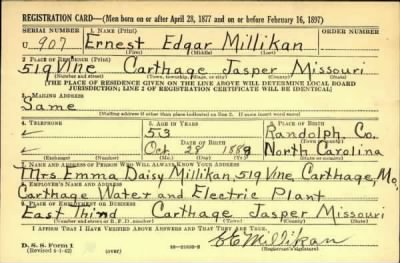 REGISTRATION CARD—(Men born on or after April 28, 1877 and on or before February 16, 1897)
SERIAL NUMBER 1. NAME (Print) ORDER NUMBER
U 907 Ernest Edgar Millikan
(First) (Middle) (Last)
2. PLACE OF RESIDENCE (Print)
519 Vine Carthage Jasper Missouri
(Number and street) (Town, township, village, or city) (County) (State)
[THE PLACE OF RESIDENCE GIVEN ON THE LINE ABOVE WILL DETERMINE LOCAL BOARD
JURISDICTION; LINE 2 OF REGISTRATION CERTIFICATE WILL BE IDENTICAL]
3. MAILING ADDRESS
Same
[Mailing address if other than place indicated on line 2. If same insert word same]
4. TELEPHONE 5. AGE IN YEARS 6. PLACE OF BIRTH
53 Randolph Co.
DATE OF BIRTH (Town or county)
Oct 28 1888 North Carolina
(Exchange) (Number) (Mo.) (Day) (Yr.) (State or country)
7. NAME AND ADDRESS OF PERSON WHO WILL ALWAYS KNOW YOUR ADDRESS
Mrs Emma Daisy Millikan, 519 Vine, Carthage, Mo.
8. EMPLOYER'S NAME AND ADDRESS
Carthage Water and Electric Plant
9. PLACE OF EMPLOYMENT OR BUSINESS
East Third Carthage Jasper Missouri
(Number and street or R. F. D. number) (Town) (County) (State)
I AFFIRM THAT I HAVE VERIFIED ABOVE ANSWERS AND THAT THEY ARE TRUE.
D. S. S. Form 1
(Revised 4-1-42) (over) E E Millikan
(Registrant's signature)